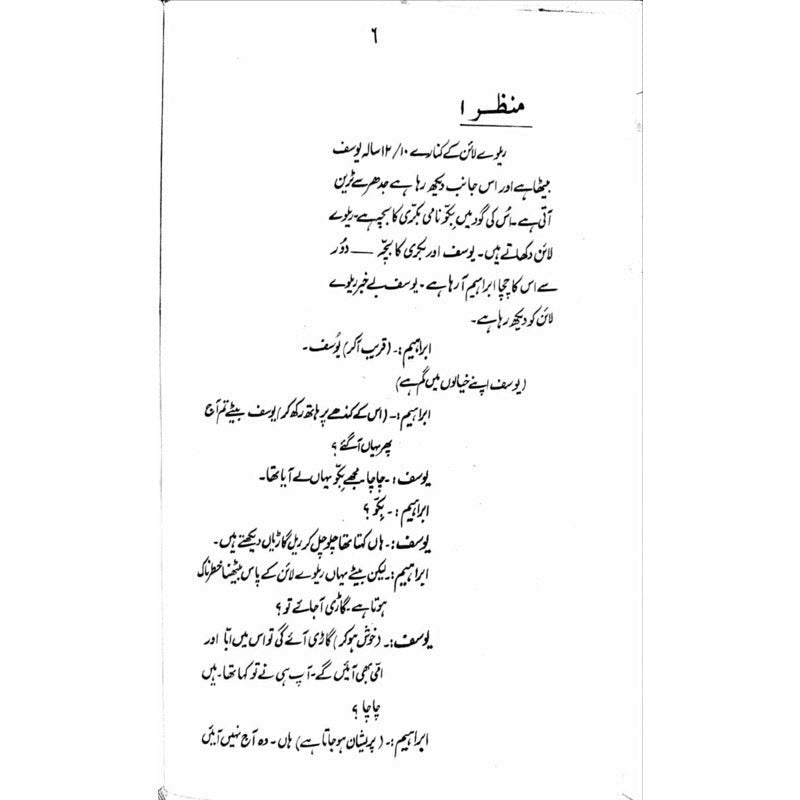 ٦
منظر ۱
ریلوے لائن کے کنارے ۱۰/ ۱۲ سالہ یوسف
بیٹھا ہے اور اس جانب دیکھ رہا ہے جدھر سے ٹرین
آتی ہے۔ اُس کی گود میں بِکّو نامی بکری کا بچہ ہے۔ ریلوے
لائن دکھاتے ہیں۔ یوسف اور بکری کا بچّہ — دُور
سے اس کا چچا ابراہیم آ رہا ہے۔ یوسف بے خبر ریلوے
لائن کو دیکھ رہا ہے۔
ابراہیم :۔ (قریب آکر) یُوسف۔
(یوسف اپنے خیالوں میں گم ہے)
ابراہیم :۔ (اس کے کندھے پر ہاتھ رکھ کر) یوسف بیٹے تم آج
پھر یہاں آ گئے ؟
یوسف :۔ چاچا۔ مجھے بِکّو یہاں لے آیا تھا۔
ابراہیم :۔ بِکّو ؟
یوسف :۔ ہاں کہتا تھا چلو چل کر ریل گاڑیاں دیکھتے ہیں۔
ابراہیم :۔ لیکن بیٹے یہاں ریلوے لائن کے پاس بیٹھنا خطرناک
ہوتا ہے۔ گاڑی آ جائے تو ؟
یوسف :۔ (خوش ہو کر) گاڑی آئے گی تو اس میں ابّا اور
امّی بھی آئیں گے۔ آپ ہی نے تو کہا تھا۔ ہیں
چاچا ؟
ابراہیم :۔ (پریشان ہو جاتا ہے) ہاں۔ وہ آج نہیں آئیں